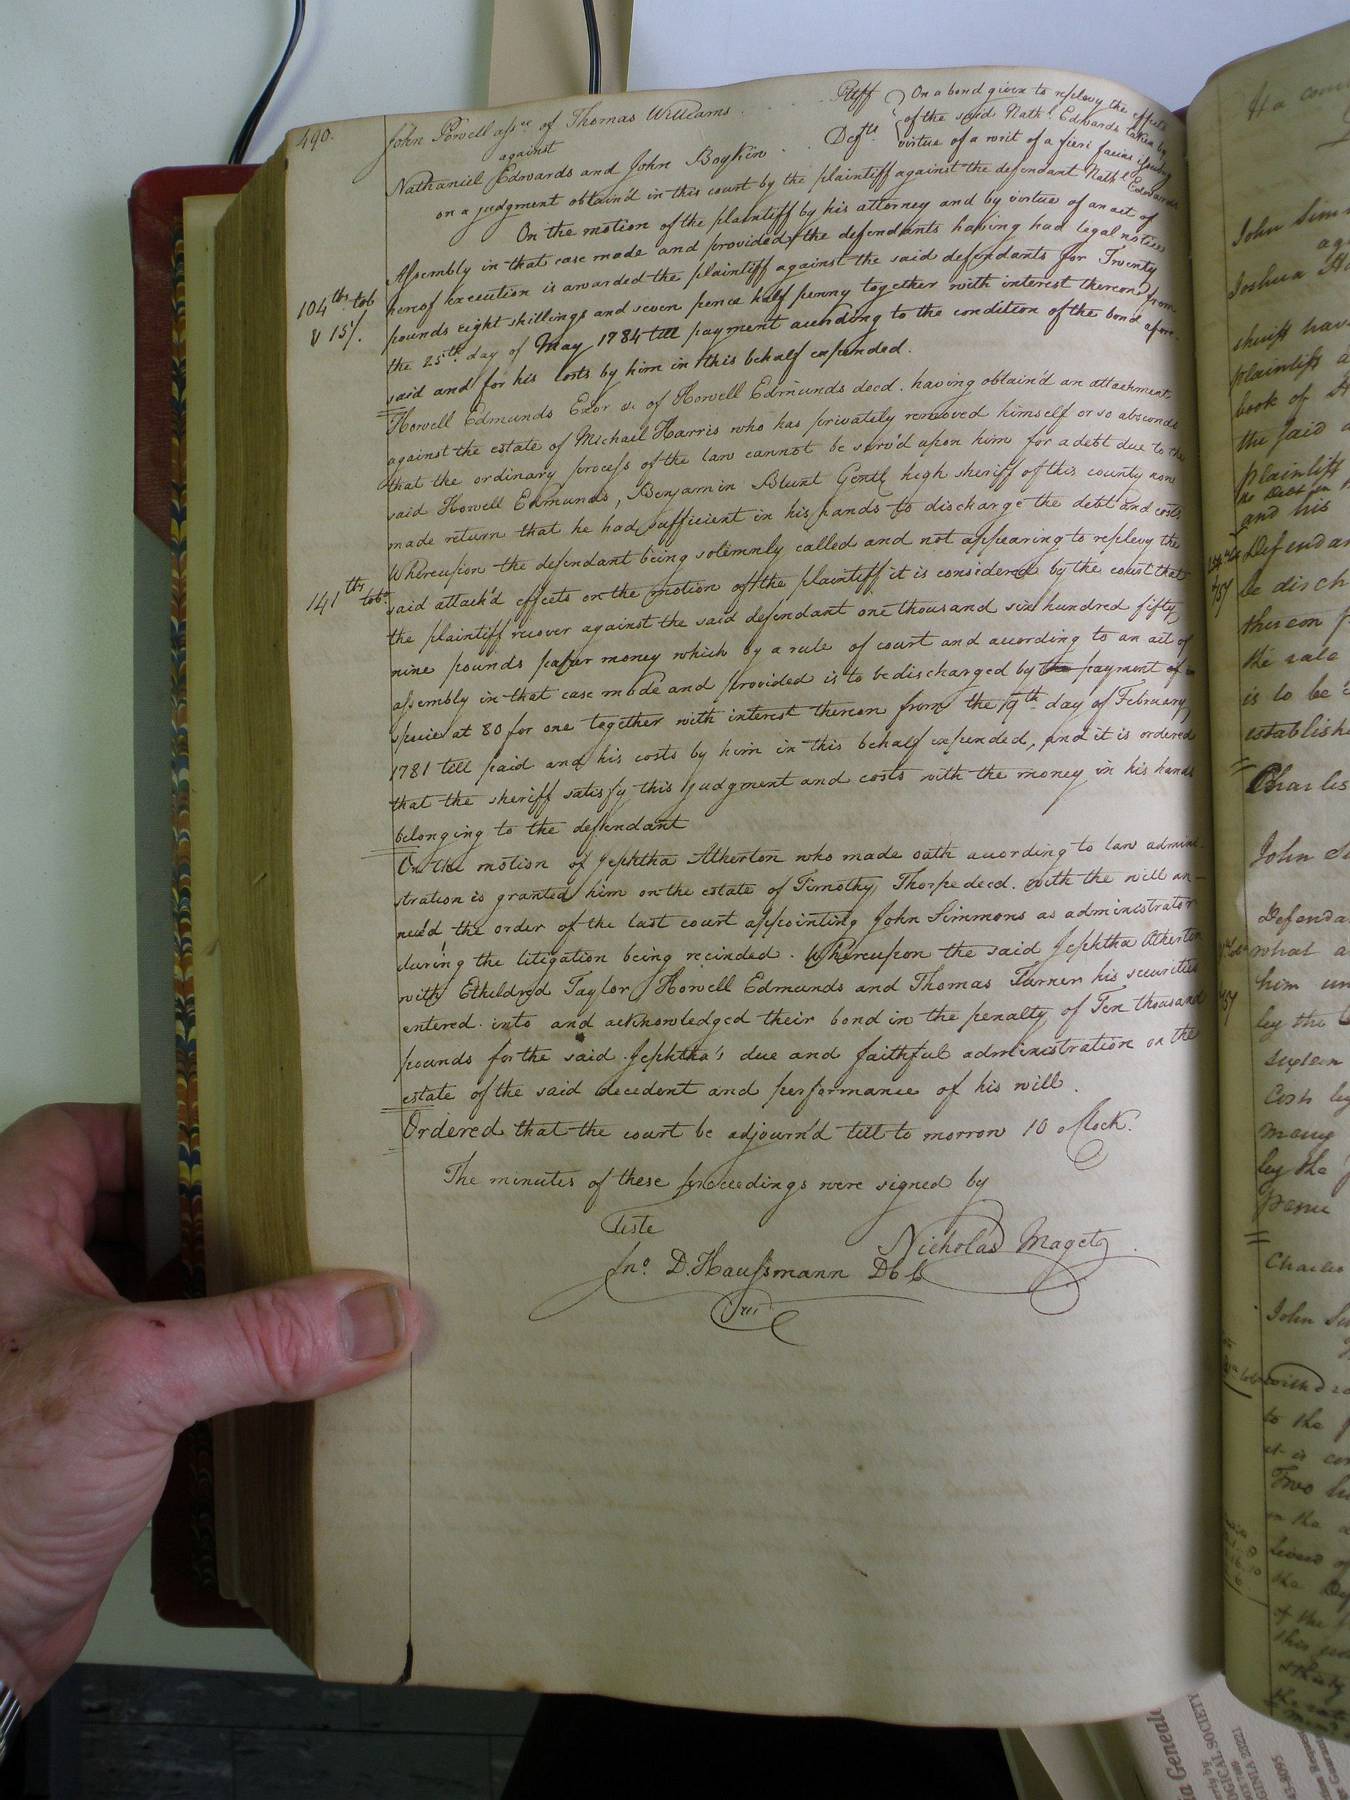 490.
John Powell assee of Thomas Williams . . . . Pltff
against
Nathaniel Edwards and John Boykin . . Defts
On a bond given to replevy the effects
of the said Nathl. Edwards taken by
virtue of a writ of a fieri facias issuing
on a judgment obtaind in this court by the plaintiff against the defendant Nathl Edwards
On the motion of the plaintiff by his attorney and by virtue of an act of
Assembly in that case made and provided, the defendants having had legal notice
104ths tob
& 15/.
hereof execution is awarded the plaintiff against the said defendants for Twenty
pounds eight shillings and seven pence half penny together with interest thereon from
the 25th day of May 1784 till payment acording to the condition of the bond afore-
said and for his costs by him in this behalf expended.
Howell Edmunds Exor &c of Howell Edmunds decd. having obtain'd an attachment
against the estate of Michael Harris who has privately removed himself or so absconds
that the ordinary process of the law cannot be serv'd upon him for a debt due to the
said Howell Edmunds, Benjamin Blunt Gentl high sheriff of this county now
made return that he had sufficient in his hands to discharge the debt and costs
Whereupon the defendant being solemnly called and not appearing to replevy the
141ths tobo
said attach'd effects on the motion of the plaintiff it is considered by the court that
the plaintiff recover against the said defendant one thousand six hundred fifty
nine pounds paper money which by a rule of court and according to an act of
assembly in that case made and provided is to be discharged by the payment of in
specie at 80 for one together with interest thereon from the 19th day of February
1781 till paid and his costs by him in this behalf expended, and it is ordered
that the sheriff satisfy this judgment and costs with the money in his hands
belonging to the defendant
On the motion of Jephtha Atherton who made oath acording to law admini-
stration is granted him on the estate of Timothy Thorpe decd. with the will an-
nex'd the order of the last court appointing John Simmons as administrator
during the litigation being recinded. Whereupon the said Jephtha Atherton
with Etheldred Taylor Howell Edmunds and Thomas Turner his securities
entered into and acknowledged their bond in the penalty of Ten thousand
pounds for the said Jephtha's due and faithful administration on the
estate of the said decedent and performance of his will.
Ordered that the court be adjourn'd till to morrow 10 oClock.
The minutes of these proceedings were signed by
Teste
Nicholas Maget
Jno. D. Haussmann
John Simm
Joshua
sheriff have
plaintiff
book of
the said
plaintiff
and his
Defendan
be disch
thereon
the rate
is to be
establish
Charles
John
Defenda
what
him
by the
Costs
many
by the
same
Charles
John
to the
Two
in the
the
GICAL SOCIETY
GINIA 23221